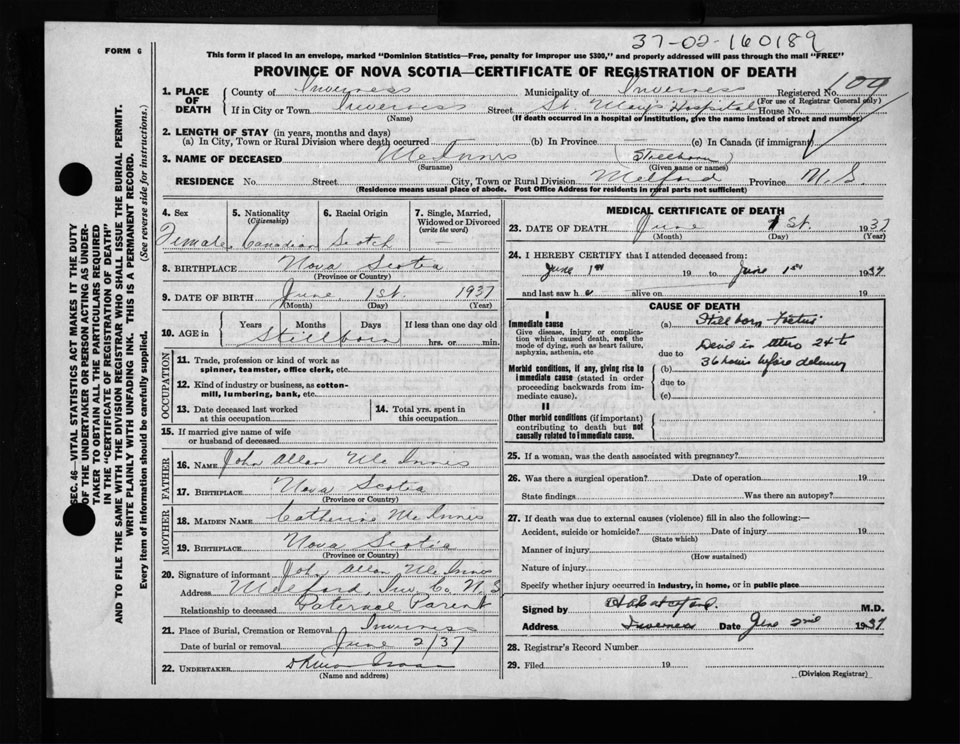 37-02-160189
FORM 6
This form if placed in an envelope, marked "Dominion Statistics—Free, penalty for improper use $300," and properly addressed will pass through the mail "FREE"
PROVINCE OF NOVA SCOTIA—CERTIFICATE OF REGISTRATION OF DEATH
1. PLACE OF DEATH County of Inverness Municipality of Inverness Registered No. 109
(For use of Registrar General only)
If in City or Town Inverness Street St. Mary's Hospital House No.
(Name) (If death occurred in a hospital or institution, give the name instead of street and number)
2. LENGTH OF STAY (in years, months and days)
(a) In City, Town or Rural Division where death occurred (b) In Province (c) In Canada (if immigrant)
3. NAME OF DECEASED McInnis (Stillborn)
(Surname) (Given name or names)
RESIDENCE No. Street City, Town or Rural Division Melford Province N.S.
(Residence means usual place of abode. Post Office Address for residents in rural parts not sufficient)
4. Sex 5. Nationality (Citizenship) 6. Racial Origin 7. Single, Married, Widowed or Divorced (write the word)
Female Canadian Scotch —
8. BIRTHPLACE Nova Scotia
(Province or Country)
9. DATE OF BIRTH June 1st. 1937
(Month) (Day) (Year)
10. AGE in Years Months Days If less than one day old
Stillborn hrs. or min.
OCCUPATION
11. Trade, profession or kind of work as spinner, teamster, office clerk, etc.
12. Kind of industry or business, as cotton-mill, lumbering, bank, etc.
13. Date deceased last worked at this occupation 14. Total yrs. spent in this occupation
15. If married give name of wife or husband of deceased
FATHER
16. NAME John Allan McInnis
17. BIRTHPLACE Nova Scotia
(Province or Country)
MOTHER
18. MAIDEN NAME Catherine McInnis
19. BIRTHPLACE Nova Scotia
(Province or Country)
20. Signature of informant John Allan McInnis
Address Melford, Inv. Co. N.S
Relationship to deceased Paternal Parent
21. Place of Burial, Cremation or Removal Inverness
Date of burial or removal June 2/37
22. UNDERTAKER
(Name and address)
MEDICAL CERTIFICATE OF DEATH
23. DATE OF DEATH June 1st. 1937
(Month) (Day) (Year)
24. I HEREBY CERTIFY that I attended deceased from:
June 1st 19 to June 1st 1937
and last saw h alive on 19
CAUSE OF DEATH
I
Immediate cause
Give disease, injury or complication which caused death, not the mode of dying, such as heart failure, asphyxia, asthenia, etc
(a) Stillborn Foetus
due to Dead in utero 24 to
(b) 36 hours before delivery
Morbid conditions, if any, giving rise to immediate cause (stated in order proceeding backwards from immediate cause).
due to
(c)
II
Other morbid conditions (if important) contributing to death but not causally related to immediate cause.
25. If a woman, was the death associated with pregnancy?
26. Was there a surgical operation? Date of operation 19
State findings Was there an autopsy?
27. If death was due to external causes (violence) fill in also the following:—
Accident, suicide or homicide? Date of injury 19
(State which)
Manner of injury
(How sustained)
Nature of injury
Specify whether injury occurred in industry, in home, or in public place
Signed by M.D.
Address Inverness Date June 2nd 1937
28. Registrar's Record Number
29. Filed 19
(Division Registrar)
SEC. 46—VITAL STATISTICS ACT MAKES IT THE DUTY
OF THE UNDERTAKER OR PERSON ACTING AS UNDER-
TAKER TO OBTAIN ALL THE PARTICULARS REQUIRED
IN THE "CERTIFICATE OF REGISTRATION OF DEATH"
AND TO FILE THE SAME WITH THE DIVISION REGISTRAR WHO SHALL ISSUE THE BURIAL PERMIT.
WRITE PLAINLY WITH UNFADING INK. THIS IS A PERMANENT RECORD.
Every item of information should be carefully supplied. (See reverse side for instructions.)